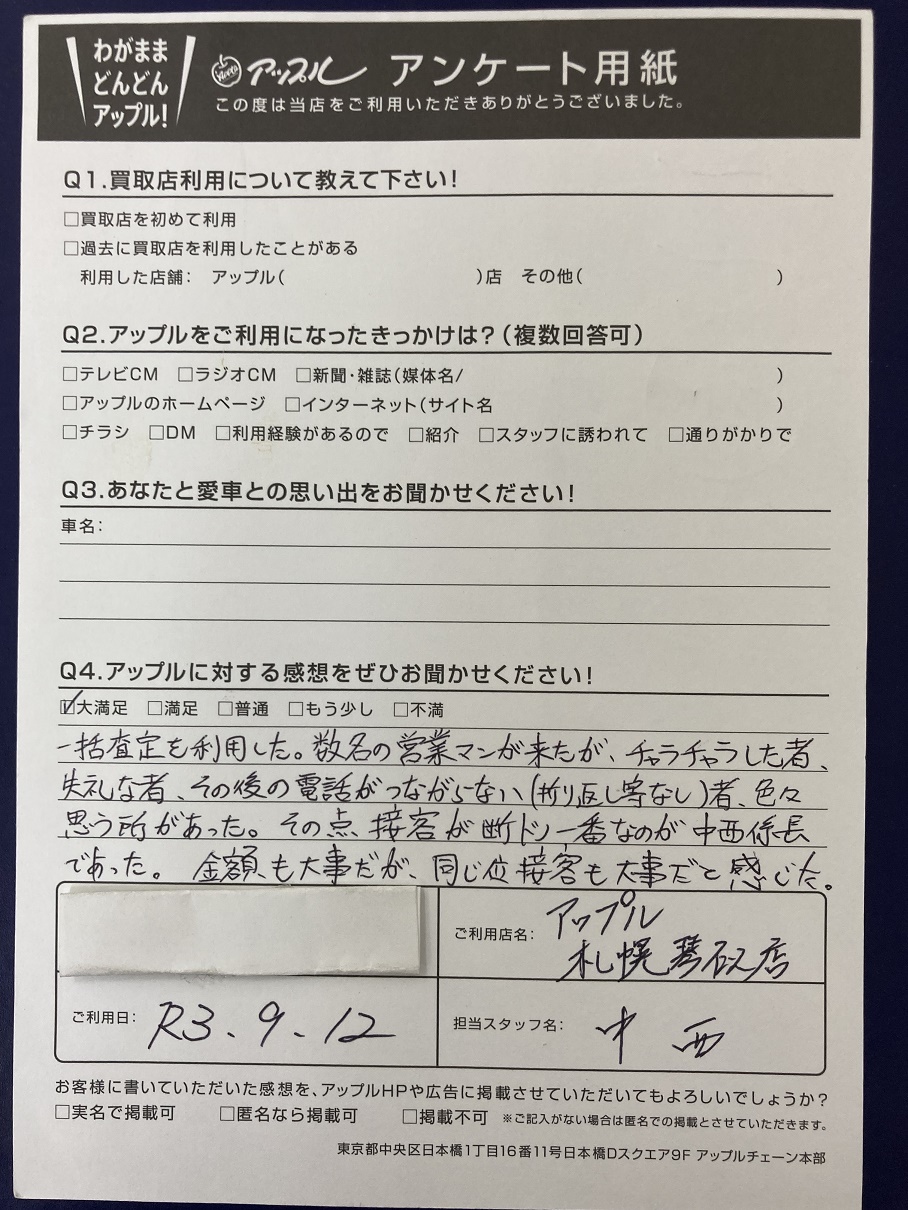 わがまま
どんどん
アップル!
アップル アンケート用紙
この度は当店をご利用いただきありがとうございました。
Q1.買取店利用について教えて下さい!
□買取店を初めて利用
□過去に買取店を利用したことがある
利用した店舗： アップル( )店 その他( )
Q2.アップルをご利用になったきっかけは?(複数回答可)
□テレビCM □ラジオCM □新聞・雑誌(媒体名/ )
□アップルのホームページ □インターネット(サイト名 )
□チラシ □DM □利用経験があるので □紹介 □スタッフに誘われて □通りがかりで
Q3.あなたと愛車との思い出をお聞かせください!
車名：
Q4.アップルに対する感想をぜひお聞かせください!
☑大満足 □満足 □普通 □もう少し □不満
一括査定を利用した。数名の営業マンが来たが、チャラチャラした者、
失礼な者、その後の電話がつながらない(折り返し等なし)者、色々
思う所があった。その点接客が断トツ一番なのが中西係長
であった。 金額も大事だが、同じ位接客も大事だと感じた。
ご利用店名： アップル
札幌琴似店
ご利用日： R3.9.12
担当スタッフ名： 中西
お客様に書いていただいた感想を、アップルHPや広告に掲載させていただいてもよろしいでしょうか?
□実名で掲載可 □匿名なら掲載可 □掲載不可 ※ご記入がない場合は匿名での掲載とさせていただきます。
東京都中央区日本橋1丁目16番11号日本橋Dスクエア9F アップルチェーン本部